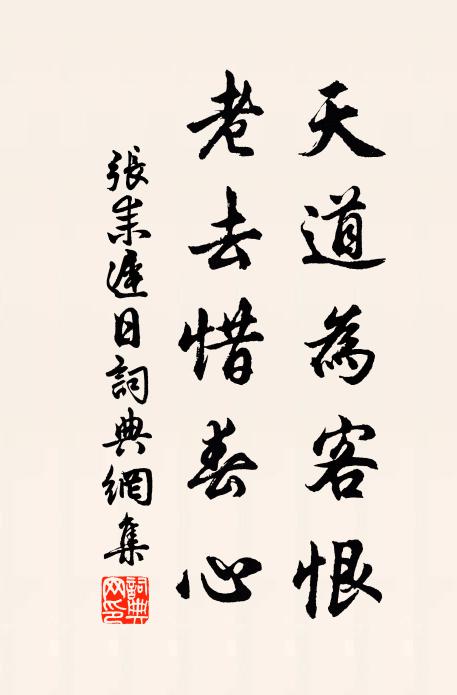 天道為客恨
老去惜春心
張耒遲日詞典網集
詞典网印